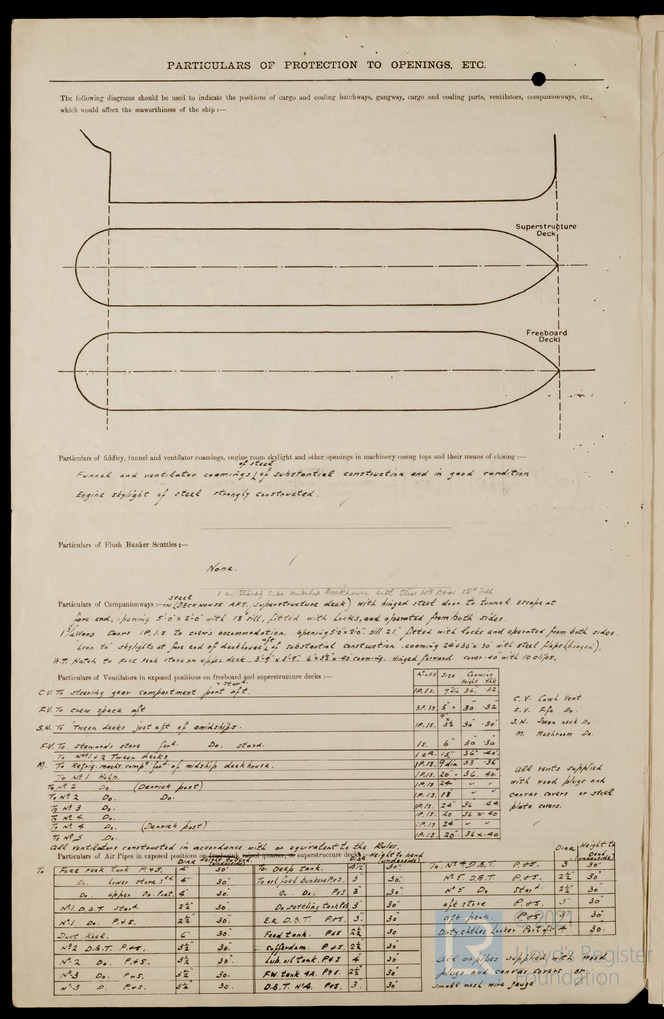 PARTICULARS OF PROTECTION TO OPENINGS, ETC.
The following diagrams should be used to indicate the positions of cargo and coaling hatchways, gangway, cargo and coaling ports, ventilators, companionways, etc.,
which would affect the seaworthiness of the ship :—
Superstructure
Deck
Freeboard
Deck
Particulars of fiddley, funnel and ventilator coamings, engine room skylight and other openings in machinery casing tops and their means of closing :—
of steel
Funnel and ventilator coamings of substantial construction and in good condition
Engine skylight of steel strongly constructed.
Particulars of Flush Bunker Scuttles :—
None.
steel
Particulars of Companionways :— IN (DECKHOUSE AFT. superstructure deck) with hinged steel door to tunnel escape at
fore end, opening 5'0" x 2'0" with 18" sill, fitted with locks, and operated from both sides.
Wood Doors 1P.1.S to crew's accommodation. opening 5'0" x 2'0" sill 21" fitted with locks and operated from both sides
aft
Iron to skylights at fore end of deckhouse of substantial construction. coaming 24 x 36 x 30 with steel flaps (hinged).
W.T. Hatch to Fore Peak store on upper deck. coaming. Hinged forward. cover with 10 clips.
Particulars of Ventilators in exposed positions on freeboard and superstructure decks :—
Size Coaming
Height
C.V. To steering gear compartment port aft. 1P.1S. 9" dia 36. .32
F.V. To crew space aft 3P.3S. 5" 30 .32
S.N. To 'Tween decks just aft of amidships. 1P.1S. 30 .30
F.V. To stewards store Do. stard. 1S. 6" 30 30
To Nos 1 & 2 Tween decks 36" 40
M. To Refrig. mechy. compt of midship deckhouse. 1P.1S. 9 dia 33 .36
To No 1 Hold. 1P.1S. 20" 36 40.
To No 2 Do. (Derrick post) 1P.1S 24 " "
To No 2 Do. Do. 1P.1S. 18 " "
To No 3 Do. 1P.1S. 24" 36 .44
To No 4 Do. 1P.1S. 20 36 x 40
To No 4 Do. (Derrick post) 1P.1S 24 " "
To No 5 Do. 1P.1S. 20" 36 x 40
C.V. Cowl Vent
F.V. Do.
S.N. Swan neck Do
M. Mushroom Do.
All vents supplied
with wood plugs and
canvas covers or steel
plate covers.
All ventilators constructed in accordance with or equivalent to the Rules.
Particulars of Air Pipes in exposed positions on freeboard, raised quarter, or superstructure decks
Dina
To Fore peak tank P.&S. 4" 30" To Deep tank. 4½ 30"
Do. lower store 4" 30" To oil fuel bunkers P&S. 3" 30"
Do. upper Do. Port. 4" 30" Do. Do. P&S 3" 30"
No 1. D.B.T. stard. 2½" 30" Do settling tank P&S 3" 30"
No 1 Do. P.&S. 2½" 30" E.R. D.B.T. P&S. 3" 30"
Duct Keel. 6" 30" Feed tank. P&S 2½ 30
No 2 D.B.T. P.&S. 3½" 30" Cofferdam. P&S. 2½ 30
No 2 Do. P.&S. 3½ 30" Lub. oil tank. P&S 4" 30"
No 3 Do P.&S. 3½" 30. F.W. tank P&S. 2½ 30"
No 3 D. P.&S. 3½" 30 D.B.T. No 4. P&S. 3" 30
Dina Height to
Deck
To. No 4 D.B.T. P.&S. 3" 30"
No 5. D.B.T. P.&S. 2½" 30"
No 5 Do Stard. 2½" 30"
aft store P&S. 3" 30
aft peak P&S) 3" 30"
Port aft 4" 30.
All air pipes supplied with wood
plugs and canvas covers or
small mesh wire gauze
© 2021
Lloyd's Register
Foundation